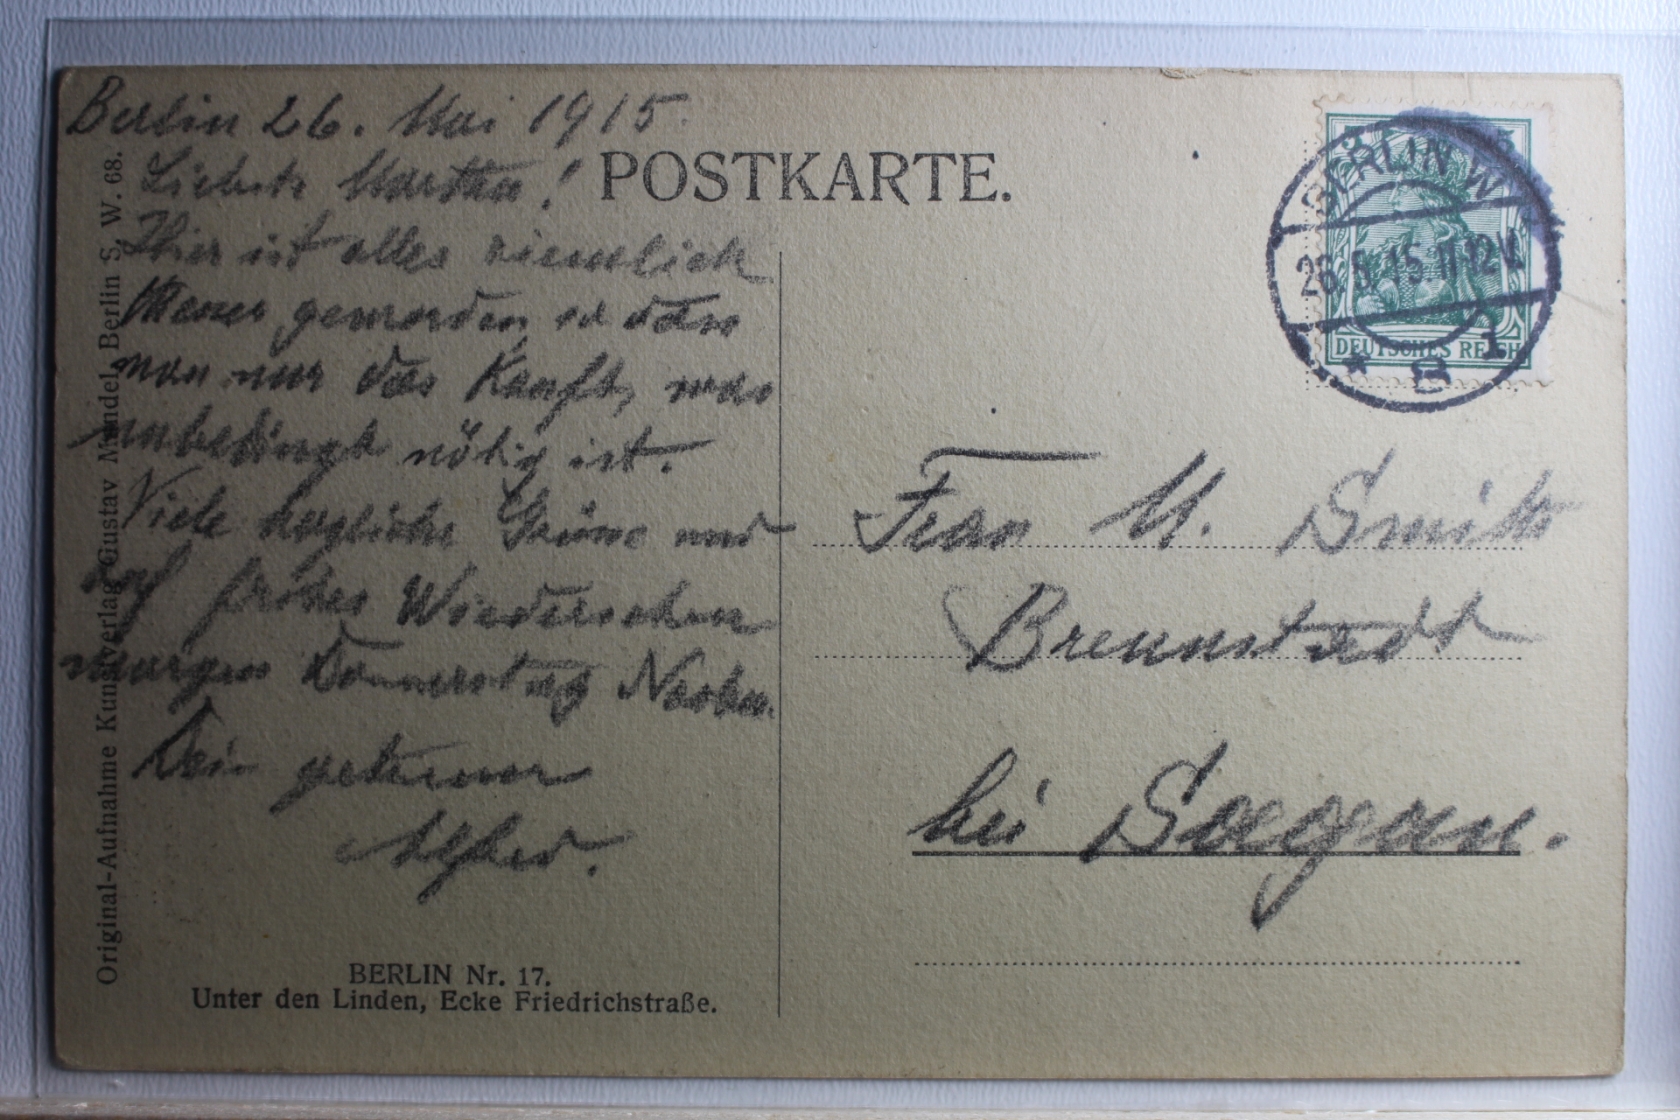 Berlin 26. Mai 1915.
Liebste Martha!
Hier ist alles ziemlich
theuer geworden, so dass
man nur das Kauft, was
unbedingt nötig ist.
Viele herzliche Grüsse und
auf frohes Wiedersehen
morgen Donnerstag Nachm.
Dein getreuer
Alfred.
Original-Aufnahme Kunstverlag Gustav Mandel, Berlin S. W. 68.
BERLIN Nr. 17.
Unter den Linden, Ecke Friedrichstraße.
POSTKARTE.
BERLIN W
26.5.15.11-12V.
* 1
DEUTSCHES REICH
5
Frau M.
bei